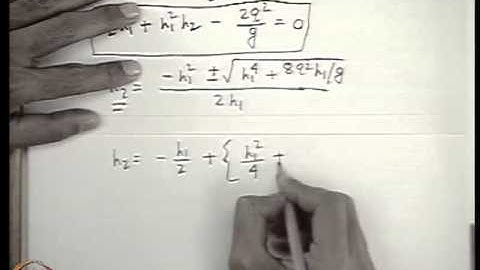 h₁ + h₁²h₂ - 2q²/g = 0
h₂ = (-h₁² ± √(h₁⁴ + 8q²h₁/g)) / 2h₁
h₂ = - h₁/2 + { h₁²/4 +